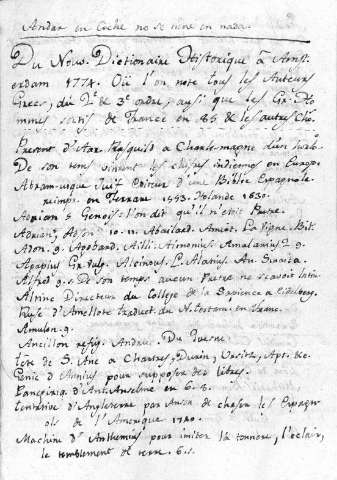 Andar en Coche no se tiene en nada.
Du Nouv. Dictionaire Historique à Amst.
erdam 1774. Où l'on note tous les Auteurs
Grecs, du 2.e & 3.e ordre, aussi que les Gr. Ho
mmes sortis de France en 85 & les autres
Present d'Aar. Raschid à Charle-magne d'un
De son tems vinrent les chifres indiennes en Europe
Abram-usque Juif Editeur d'une Biblie Espagnole
reimp. en Ferrare 1553. Holande 1630.
Adriam 5 Genois. L'on dit qu'il n'était Pretre.
Adrian, Adso. 10. 11. Abailard. Amiot. La Vigne. Bit.
Adon. 9. Agobard. Ailli. Aimonius. Amalarius 9.
Agapius Alcinous. L. Alanus. An.
Alfred 9. s. De son temps aucun Pretre ne scavoit latin
Alpine Directeur du College de la Sapience a Eidelberg.
Ruse d'Amelote traduct. du N. Testam. en
Amulon. 9.
Ancillon refug. Andrue. Du Quesne
Tête de S. Ane a Chartres, Duren, Apt. &c.
Genie d'Annius pour supposer des lètres.
Panegiriq. d'Ant. Anselme en 6. 8.
Tentative d'Angleterre par Anson de chasser les Espagn
ols de l'Amerique 1740.
Machine d'Anthemius pour imiter la tonnere, l'eclair,
le tremblement de terre. 6. s.